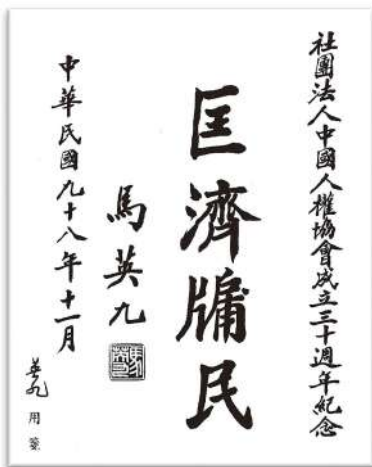 社團法人中國人權協會成立三十週年紀念
匡濟牖民
馬英九
中華民國九十八年十一月
英九 用箋